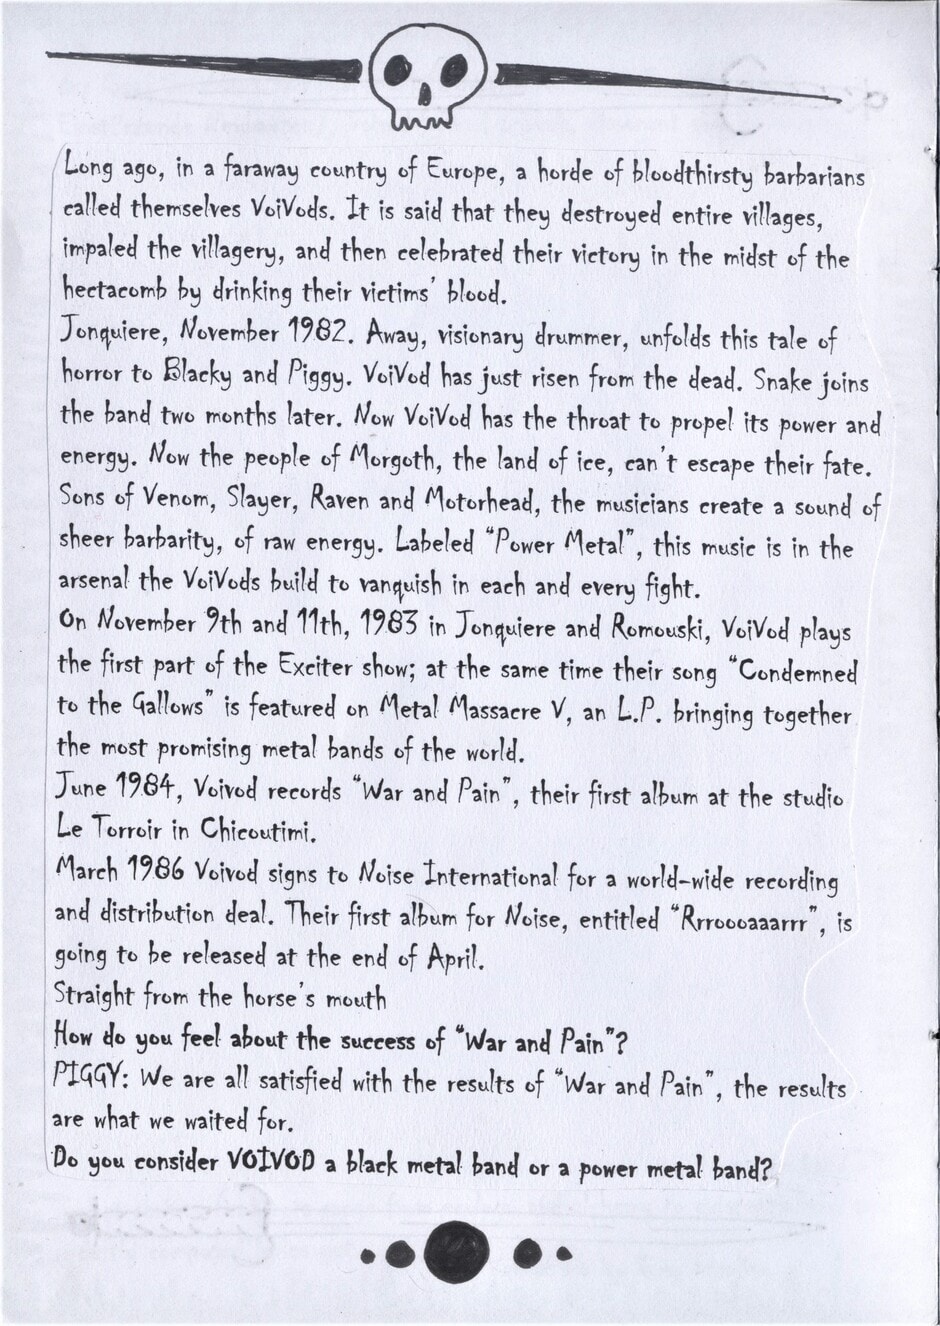 Long ago, in a faraway country of Europe, a horde of bloodthirsty barbarians
called themselves VoiVods. It is said that they destroyed entire villages,
impaled the villagery, and then celebrated their victory in the midst of the
hectacomb by drinking their victims' blood.
Jonquiere, November 1982. Away, visionary drummer, unfolds this tale of
horror to Blacky and Piggy. VoiVod has just risen from the dead. Snake joins
the band two months later. Now VoiVod has the throat to propel its power and
energy. Now the people of Morgoth, the land of ice, can't escape their fate.
Sons of Venom, Slayer, Raven and Motorhead, the musicians create a sound of
sheer barbarity, of raw energy. Labeled "Power Metal", this music is in the
arsenal the VoiVods build to vanquish in each and every fight.
On November 9th and 11th, 1983 in Jonquiere and Romouski, VoiVod plays
the first part of the Exciter show; at the same time their song "Condemned
to the Gallows" is featured on Metal Massacre V, an L.P. bringing together
the most promising metal bands of the world.
June 1984, Voivod records "War and Pain", their first album at the studio
Le Torroir in Chicoutimi.
March 1986 Voivod signs to Noise International for a world-wide recording
and distribution deal. Their first album for Noise, entitled "Rrroooaaarrr", is
going to be released at the end of April.
Straight from the horse's mouth
How do you feel about the success of "War and Pain"?
PIGGY: We are all satisfied with the results of "War and Pain", the results
are what we waited for.
Do you consider VOIVOD a black metal band or a power metal band?